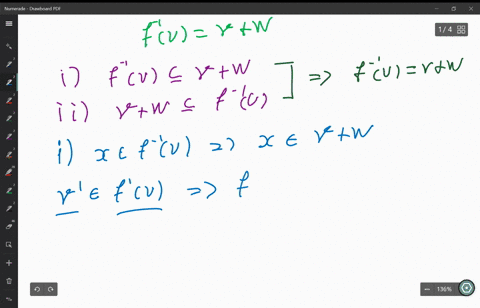 Numerade - Drawboard PDF
1/4
f⁻¹(v) = v+W
i) f⁻¹(v) ⊆ v+W
ii) v+W ⊆ f⁻¹(v) ] => f⁻¹(v) = v+W
i) x ∈ f⁻¹(v) => x ∈ v+W
v' ∈ f⁻¹(v) => f
136%